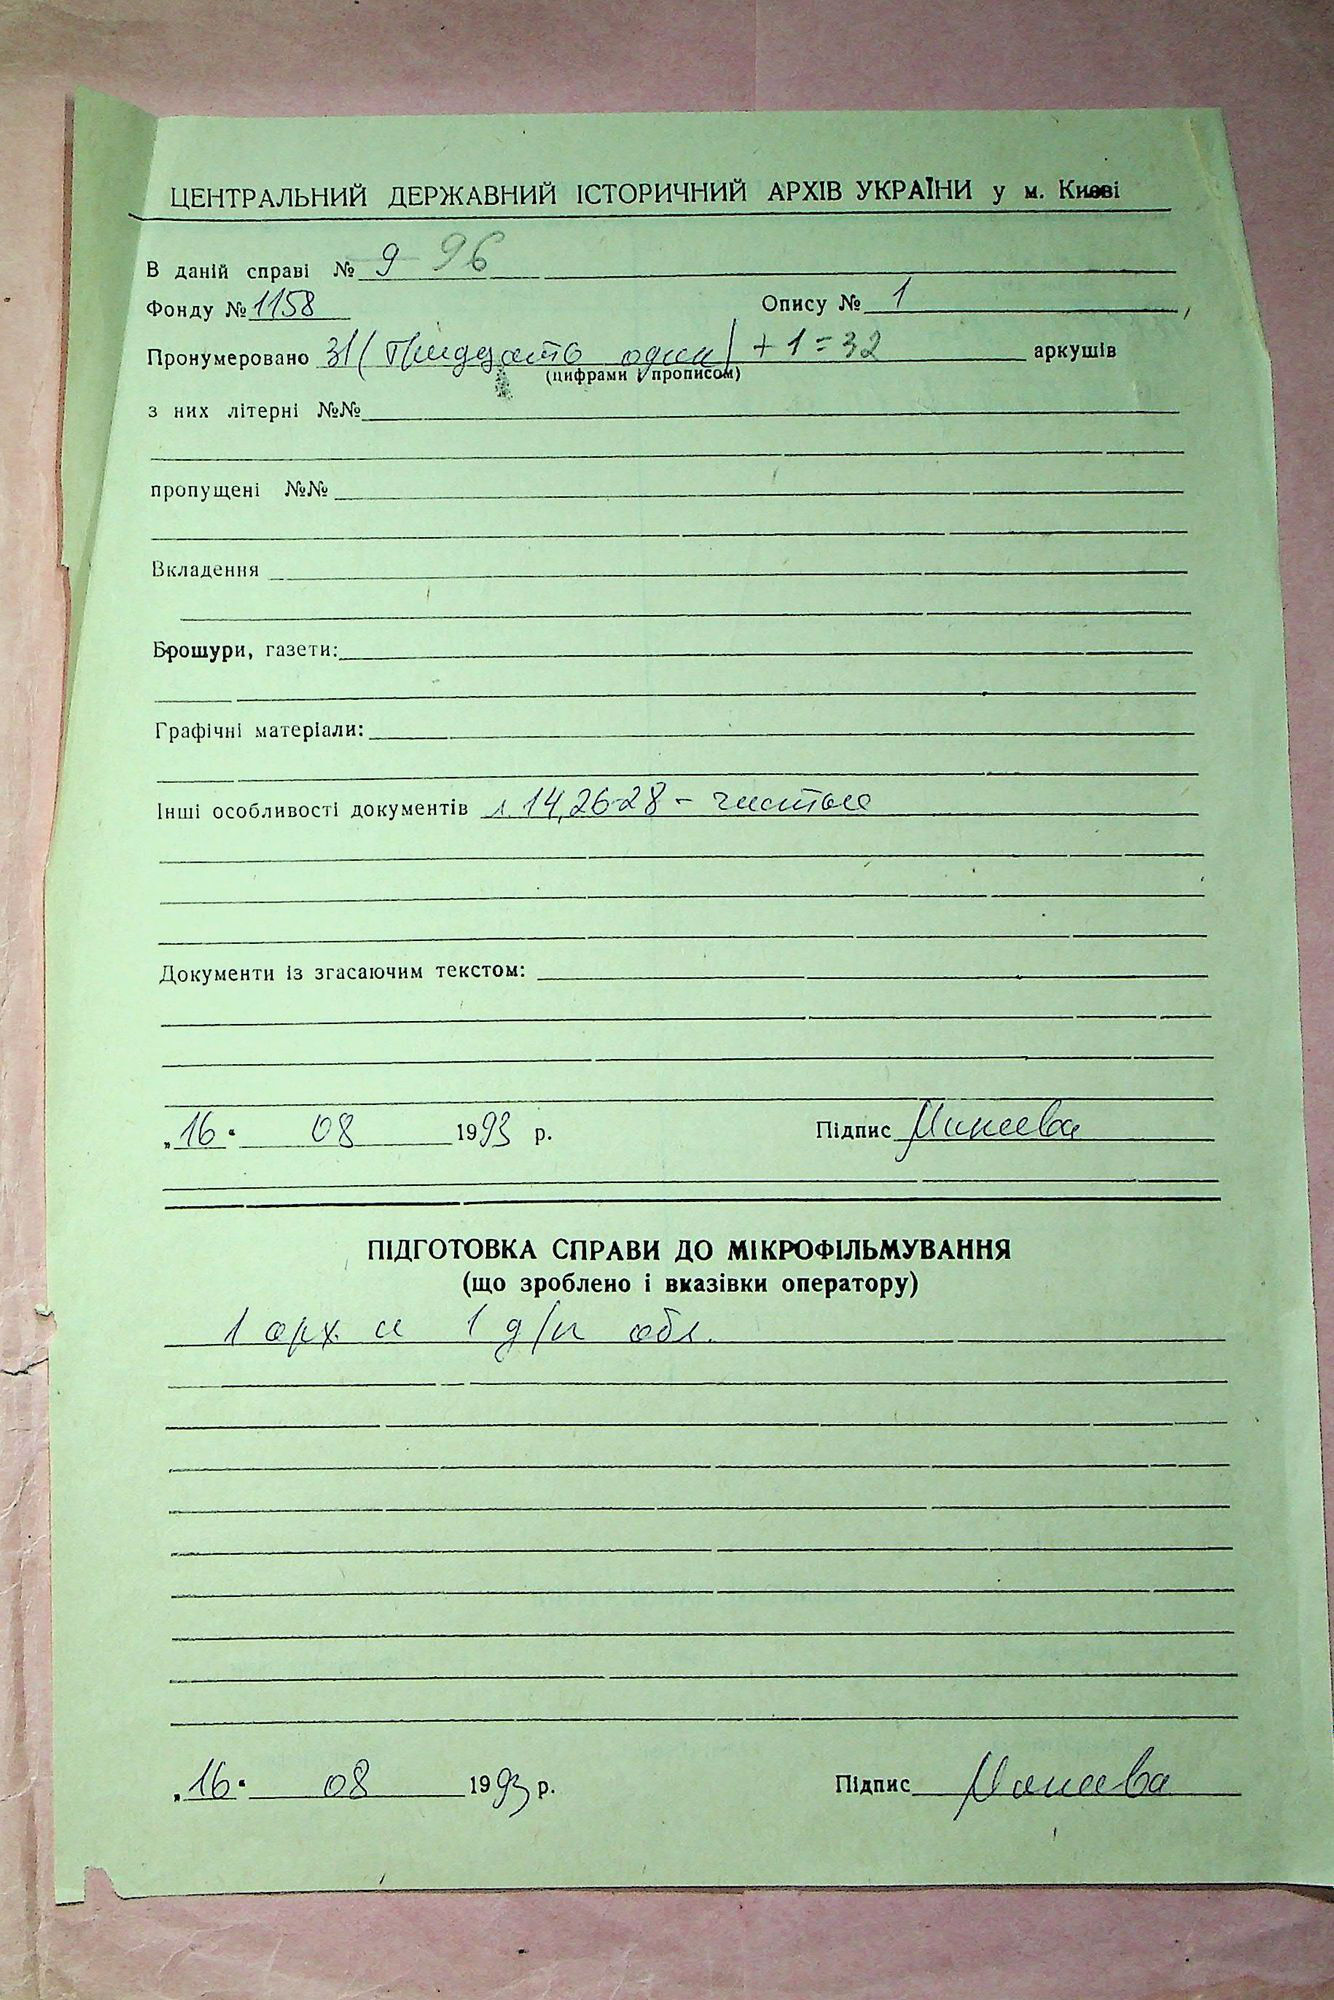 ЦЕНТРАЛЬНИЙ ДЕРЖАВНИЙ ІСТОРИЧНИЙ АРХІВ УКРАЇНИ у м. Києві
В даній справі № 9 96
Фонду № 1158 Опису № 1,
Пронумеровано 31 (тридцать один) + 1 = 32 аркушів
(цифрами і прописом)
з них літерні №№
пропущені №№
Вкладення
Брошури, газети:
Графічні матеріали:
Інші особливості документів л. 14, 26-28 – чистые
Документи із згасаючим текстом:
„16“ 08 1993 р. Підпис
ПІДГОТОВКА СПРАВИ ДО МІКРОФІЛЬМУВАННЯ
(що зроблено і вказівки оператору)
1 арх. и 1 д/п обл.
„16“ 08 1993 р. Підпис